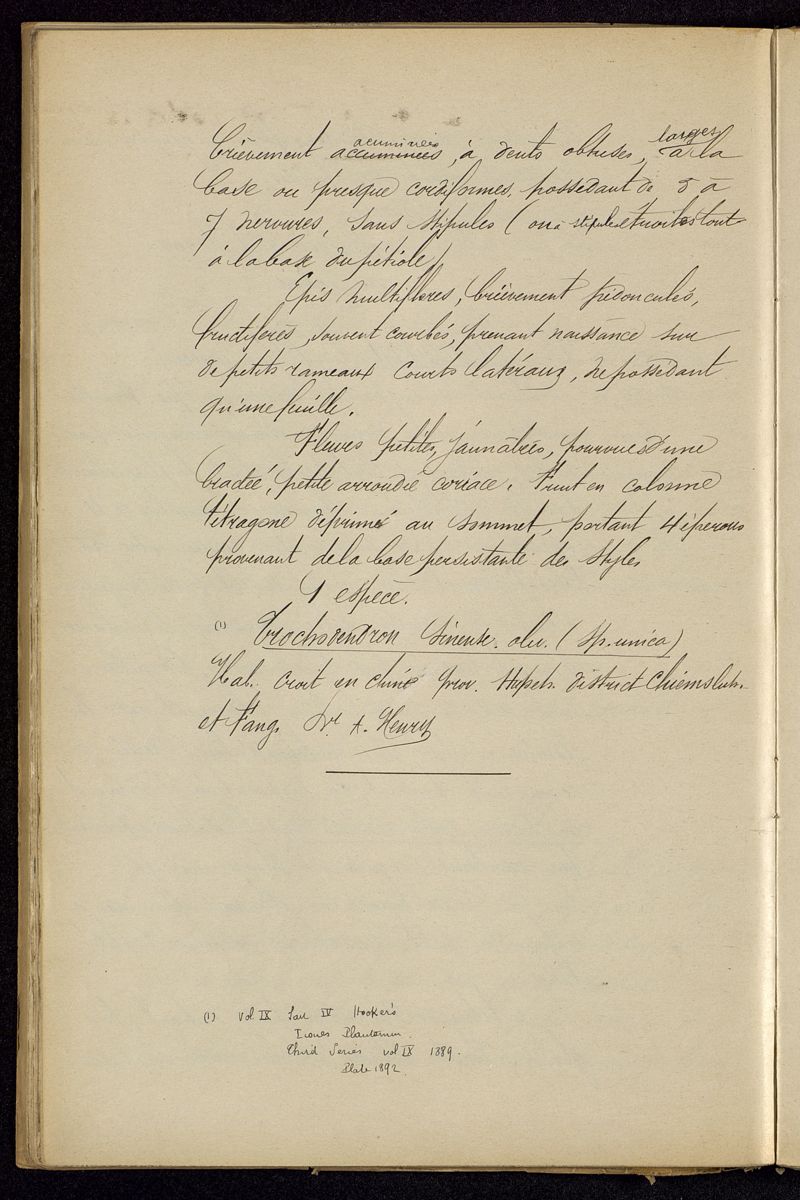 acuminées larges
brièvement accuminées, à dents obtuses, à la
base ou presque cordiformes, possédant de 5 à
7 nervures, sans stipules (ou à stipules étroites tout
à la base du pétiole)
Epis multiflores, brièvement pédonculés,
fructifères, souvent courbés, prenant naissance sur
de petits rameaux courts latéraux, ne possédant
qu'une feuille.
Fleurs petites, jaunâtres, pourvues d'une
bractée, petite arrondie coriace. Fruit en colonne
tétragone déprimé au sommet, portant 4 éperons
provenant de la base persistante des styles
1 espèce.
(1) Trochodendron sinense. oliv. (Sp. unica)
Hab. Croit en chine prov. Hupeh. district
et Fang. Dr A. Henry
(1) Vol IX Part IV Hooker's
Icones Plantarum.
Third Series vol IX 1889.
Plate 1892